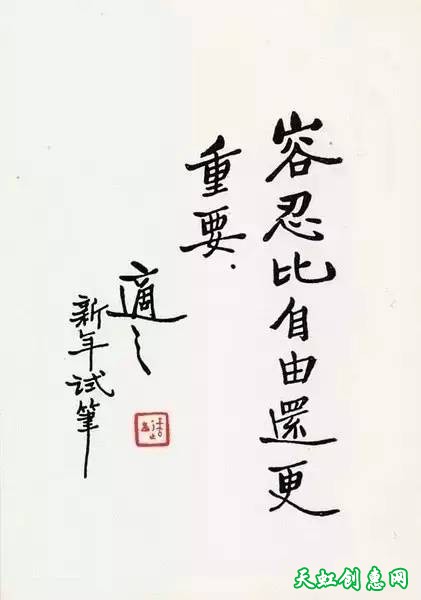 容忍比自由還更
重要.
適之
新年试筆
天虹创惠网